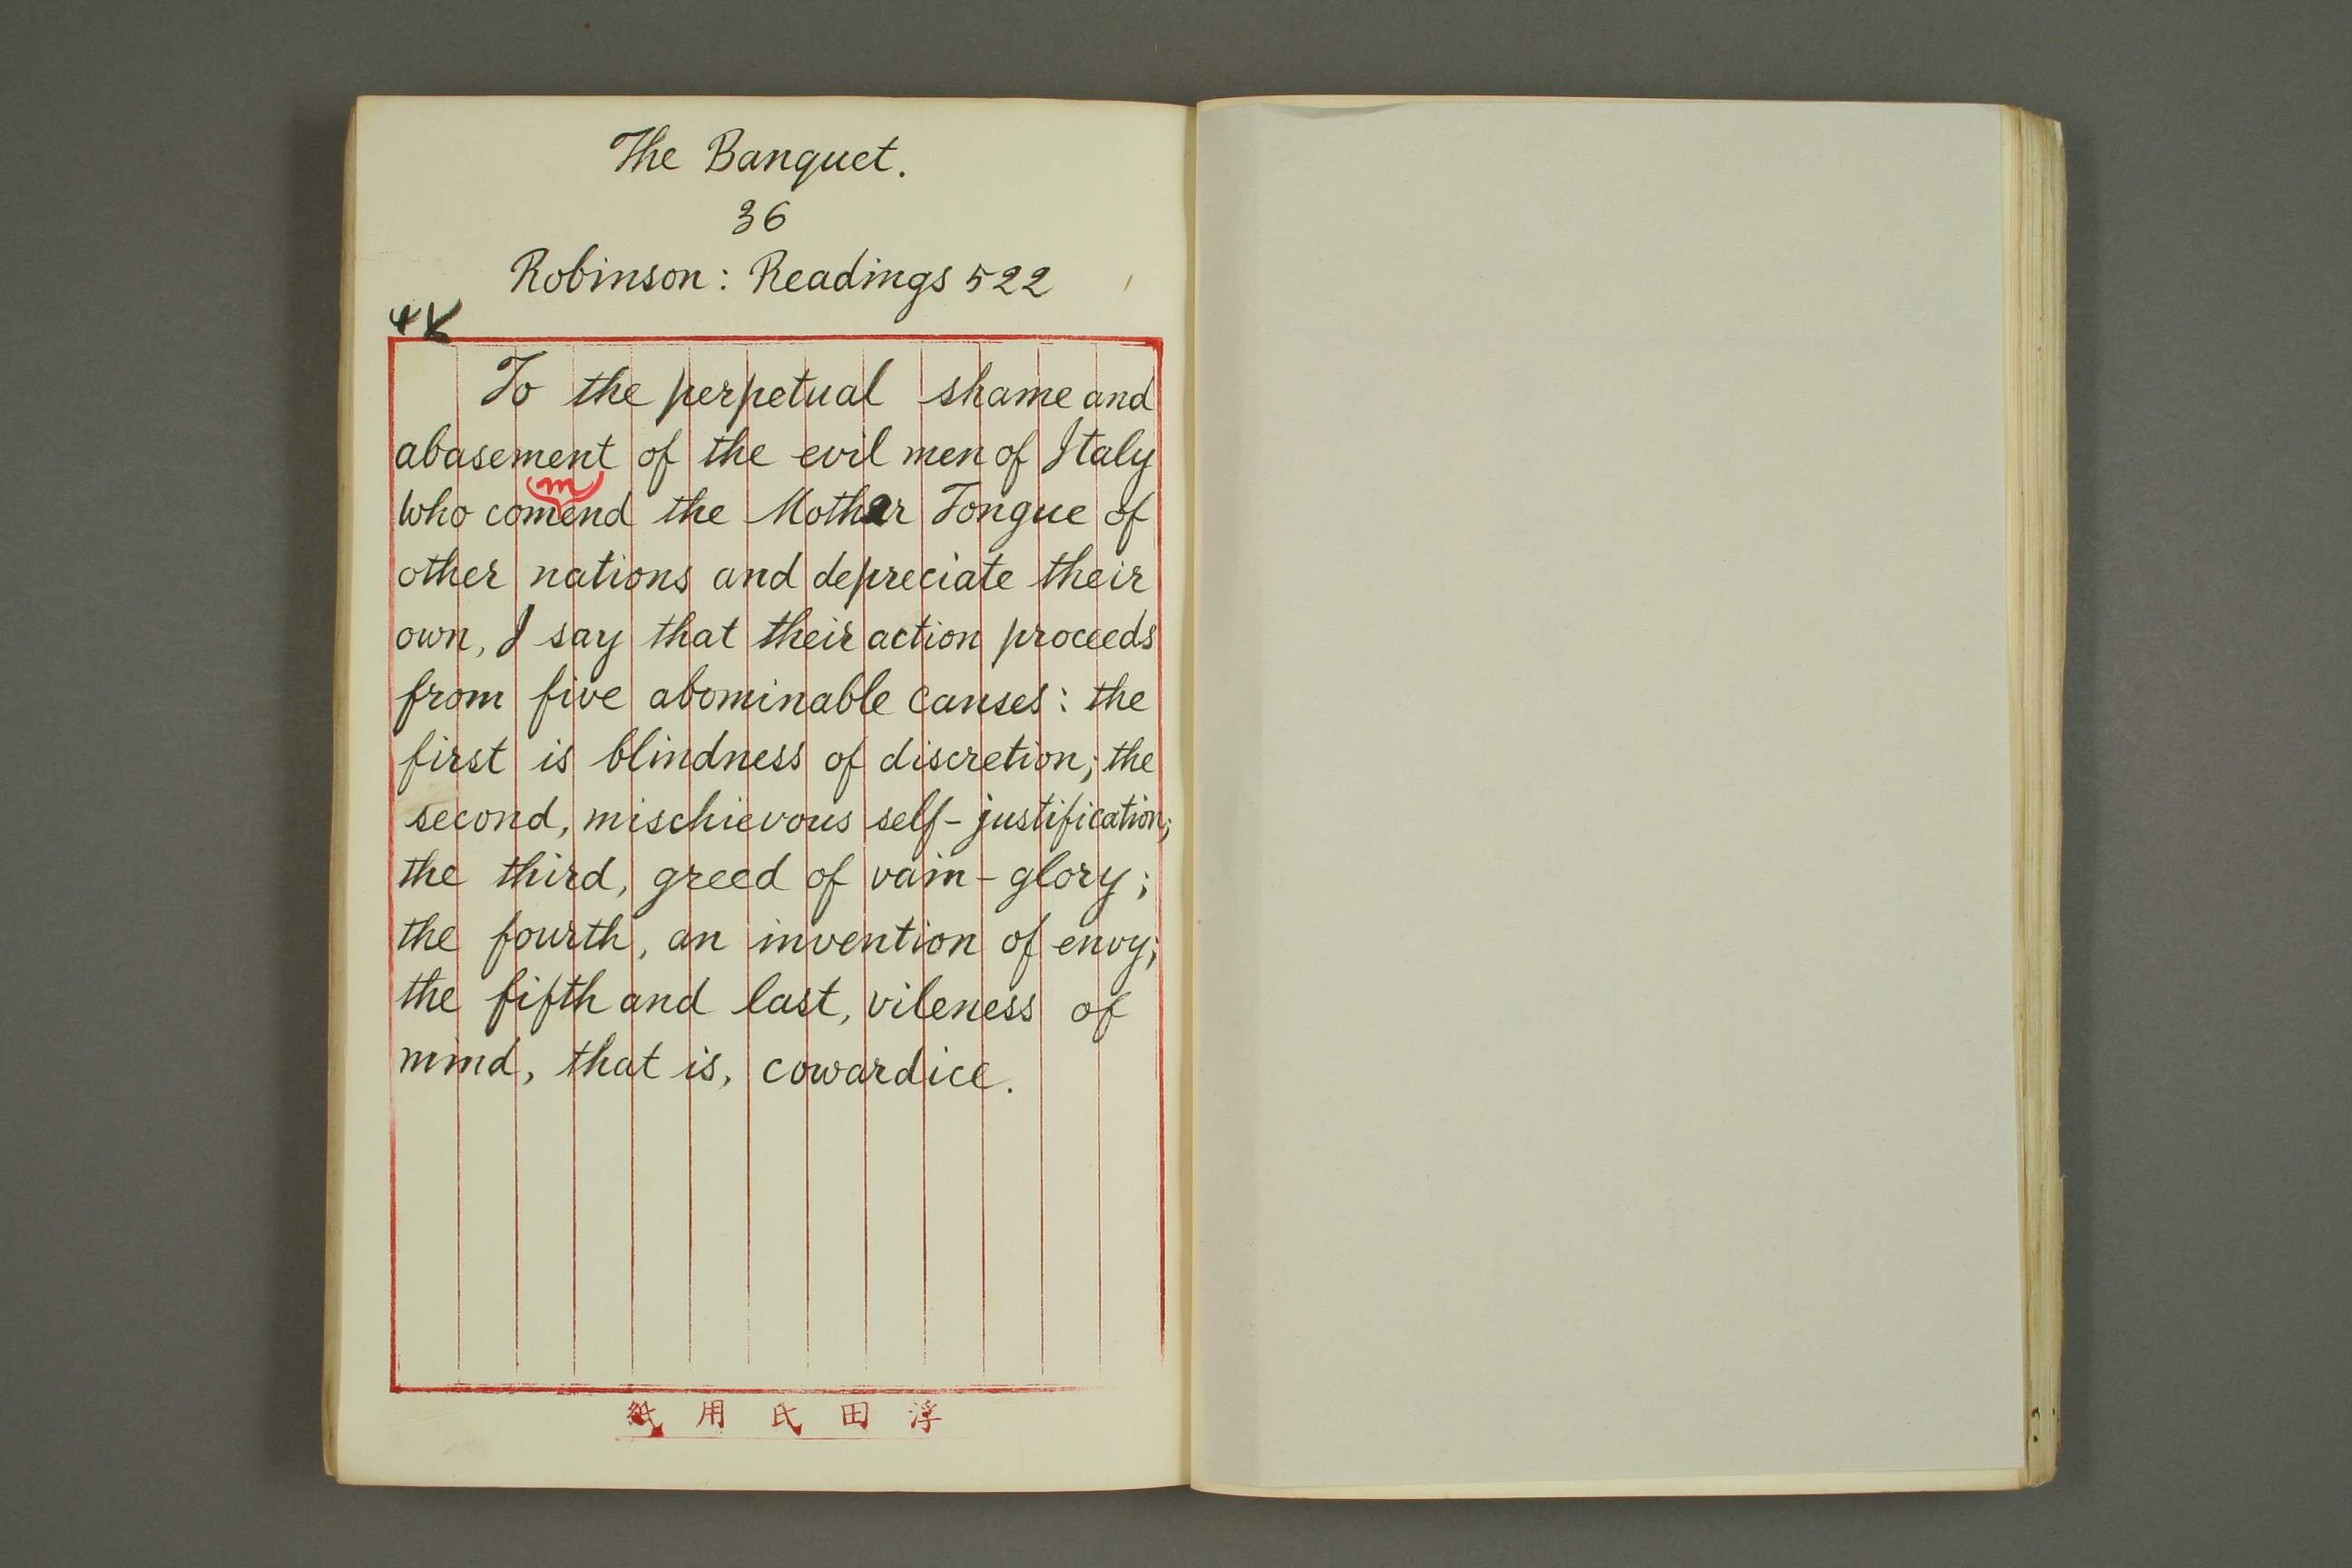 The Banquet.
36
Robinson: Readings 522
To the perpetual shame and
abasement of the evil men of Italy
m
who comend the Mother Tongue of
other nations and depreciate their
own, I say that their action proceeds
from five abominable causes: the
first is blindness of discretion; the
second, mischievous self-justification;
the third, greed of vain-glory;
the fourth, an invention of envy;
the fifth and last, vileness of
mind, that is, cowardice.
浮田氏用紙